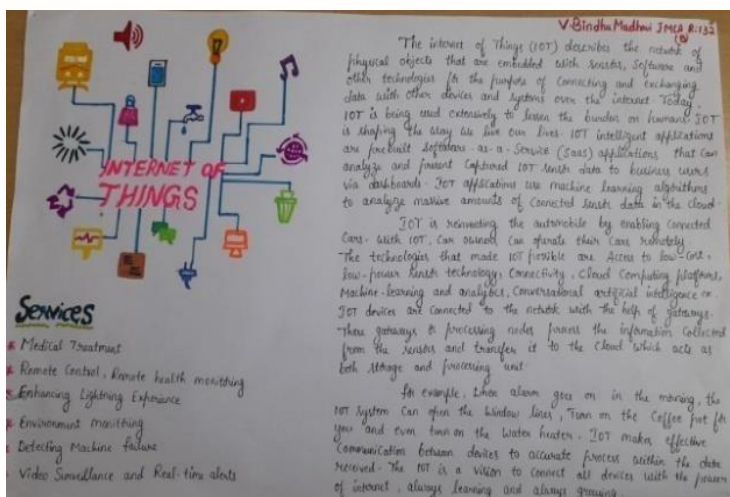 V. Bindhu Madhavi IMCA R:132
INTERNET OF
THINGS
Services
Medical Treatment
Remote Control, Remote health monitoring
Enhancing Lightning Experience
Environment monitoring
Detecting Machine failure
Video Surveillance and Real-time alerts
The internet of Things (IOT) describes the network of
physical objects that are embedded with sensors, Software and
other technologies for the purpose of Connecting and exchanging
data with other devices and systems over the internet. Today,
IOT is being used extensively to lessen the burden on humans. IOT
is shaping the way we live our lives. IOT intelligent applications
are prebuilt software-as-a-Service (SaaS) applications that can
analyze and present Captured IOT sensor data to business users
via dashboards. IOT applications use machine learning algorithms
to analyze massive amounts of Connected sensor data in the cloud.
IOT is reinventing the automobile by enabling connected
Cars. with IOT, Car owners can operate their cars remotely.
The technologies that made IOT possible are Access to low-cost,
low-power sensor technology, Connectivity, Cloud Computing platforms,
Machine-learning and analytics, Conversational artificial intelligence
IOT devices are connected to the network with the help of gateways.
These gateways or processing nodes process the information collected
from the sensors and transfer it to the Cloud which acts as
both storage and processing unit.
for example, when alarm goes on in the morning, the
IOT system can open the window lines, Turn on the Coffee pot for
you and even turn on the Water heater. IOT makes effective
Communication between devices to accurate process within the data
received. The IOT is a vision to connect all devices with the power
of internet, always learning and always growing.